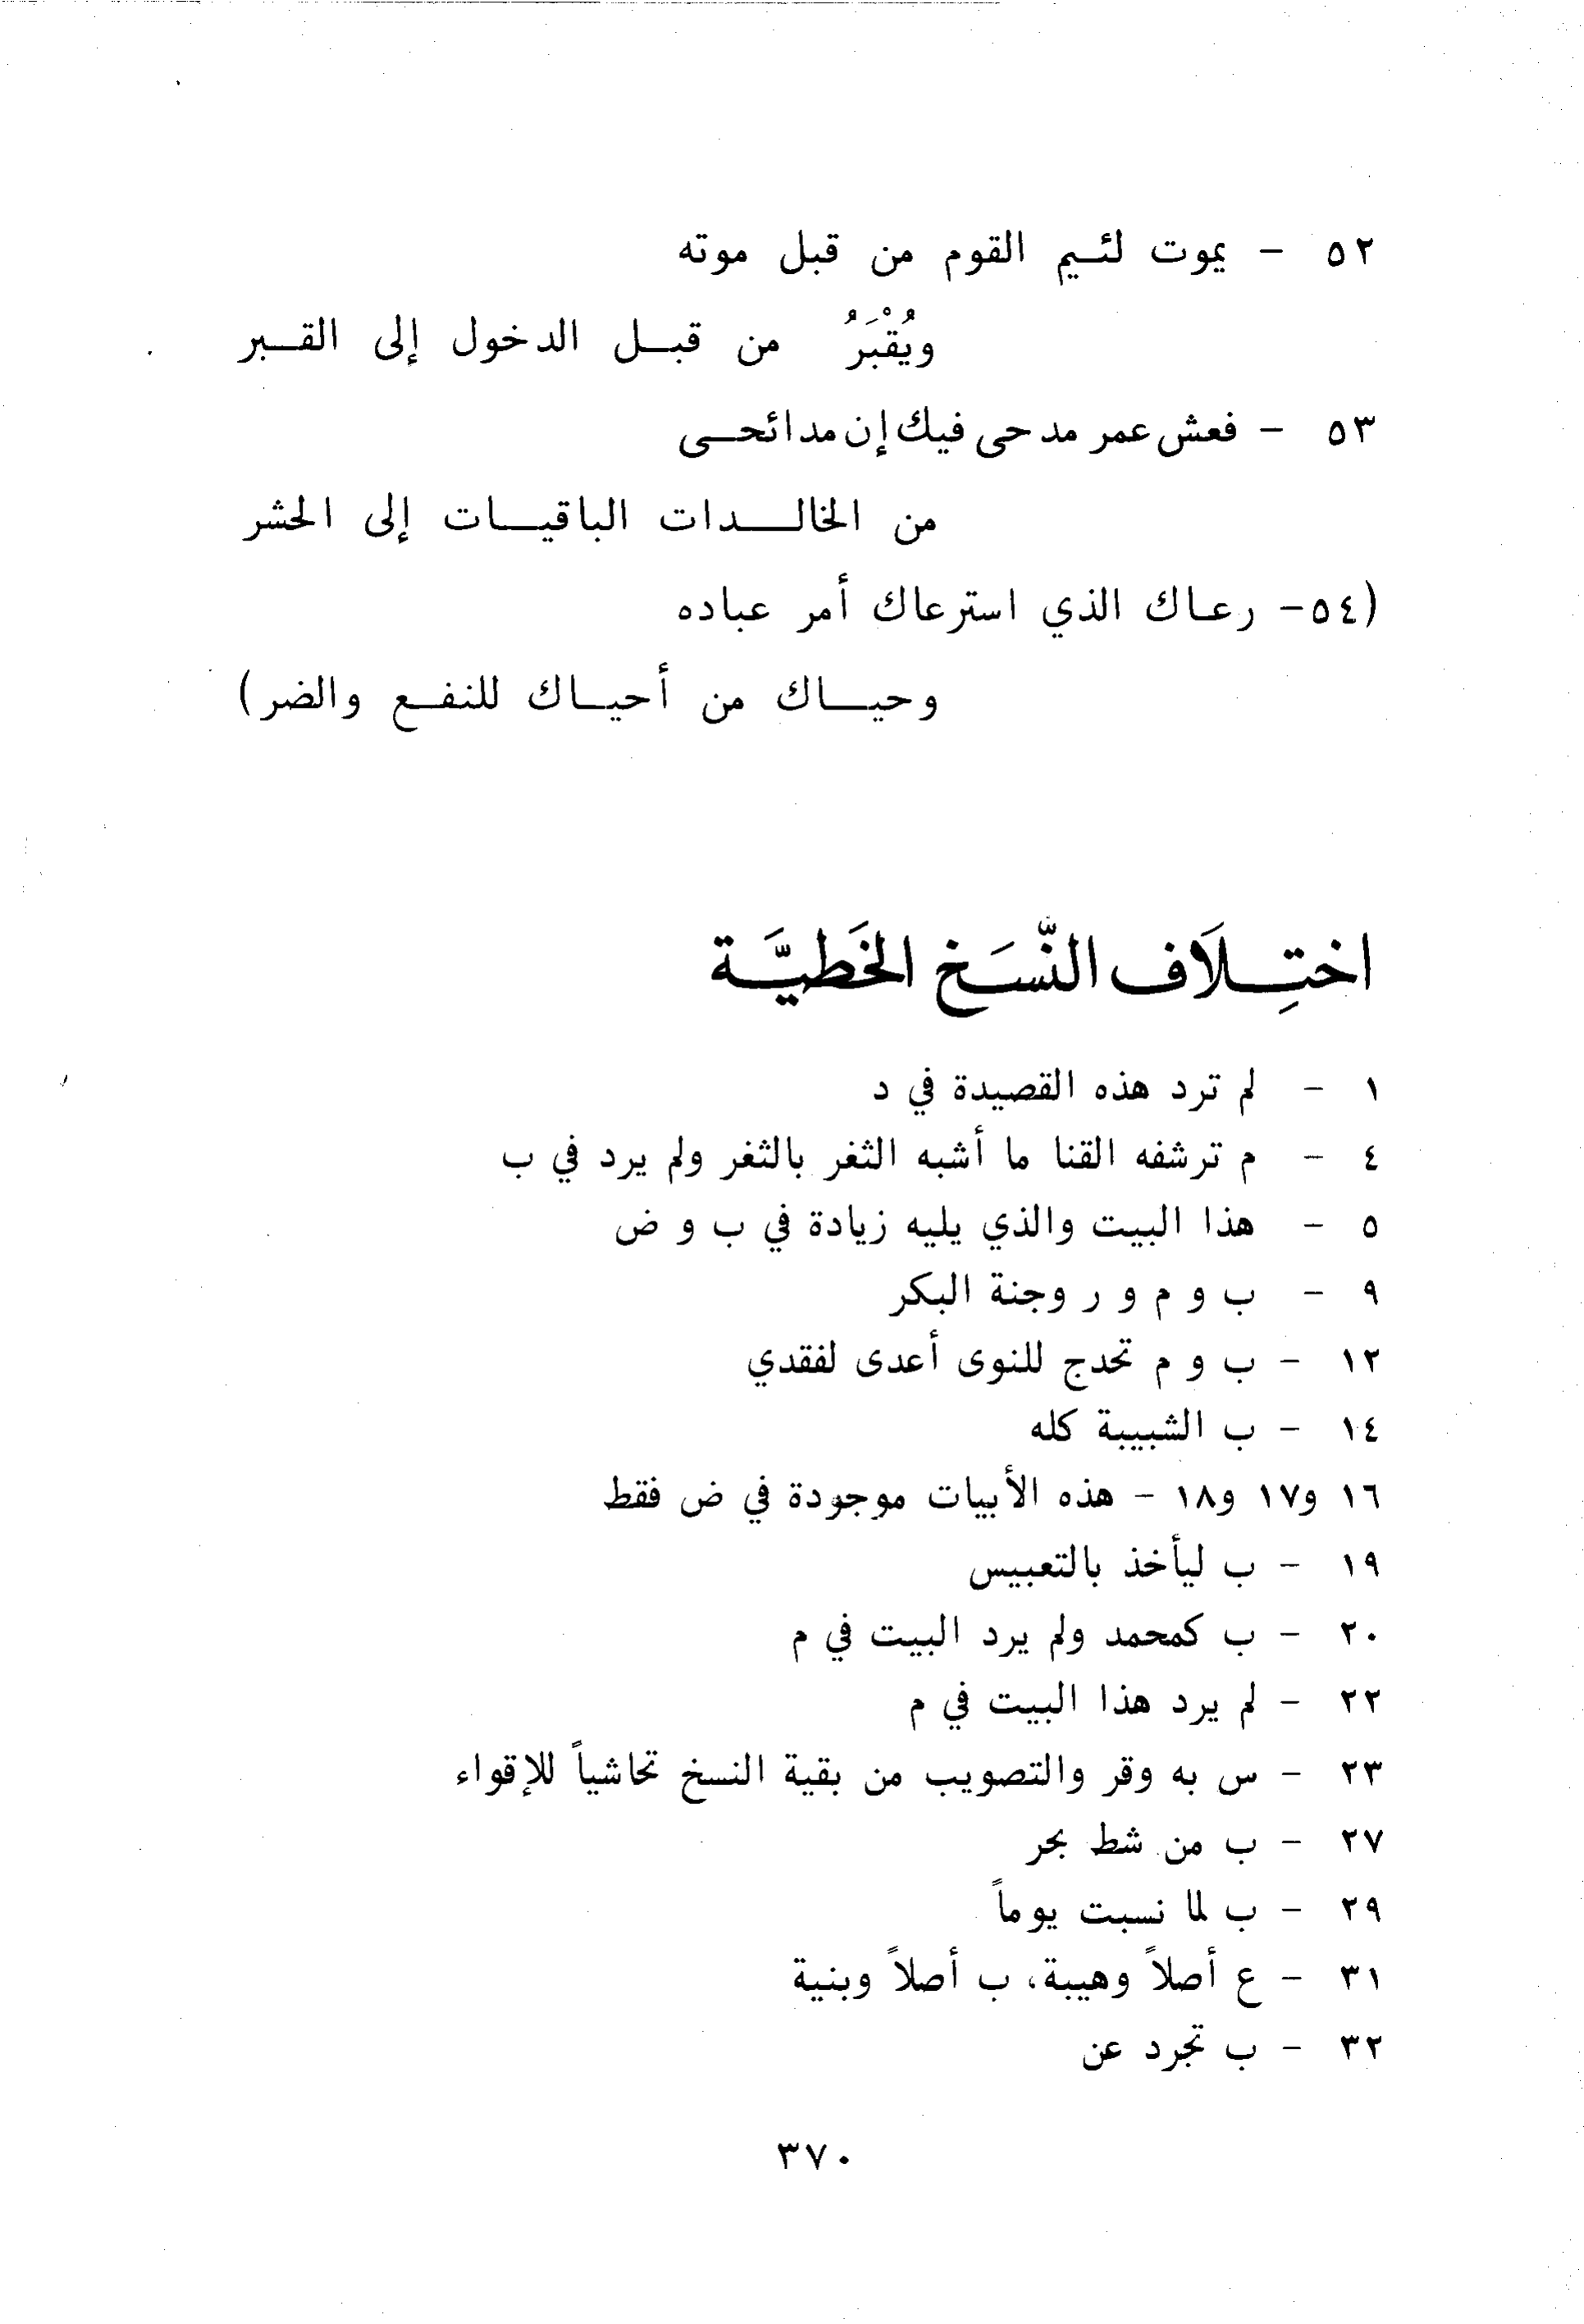 ٥٢ - يموت لئيم القوم من قبل موته
ويُقْبَرُ من قبل الدخول إلى القبر
٥٣ - فعش عمر مدحى فيك إن مدائحى
من الخالدات الباقيات إلى الحشر
(٥٤- رعاك الذي استرعاك أمر عباده
وحياك من أحياك للنفع والضر)
اختِلاَف النَّسَخ الخَطيَّة
١ - لم ترد هذه القصيدة في د
٤ - م ترشفه القنا ما أشبه الثغر بالثغر ولم يرد في ب
٥ - هذا البيت والذي يليه زيادة في ب و ض
٩ - ب و م و ر وجنة البكر
١٢ - ب و م تحدج للنوى أعدى لفقدي
١٤ - ب الشبيبة كله
١٦ و١٧ و١٨ - هذه الأبيات موجودة في ض فقط
١٩ - ب ليأخذ بالتعبيس
٢٠ - ب كمحمد ولم يرد البيت في م
٢٢ - لم يرد هذا البيت في م
٢٣ - س به وقر والتصويب من بقية النسخ تحاشياً للإقواء
٢٧ - ب من شط بحر
٢٩ - ب لما نسبت يوماً
٣١ - ع أصلاً وهيبة، ب أصلاً وبنية
٣٢ - ب تجرد عن
٣٧٠